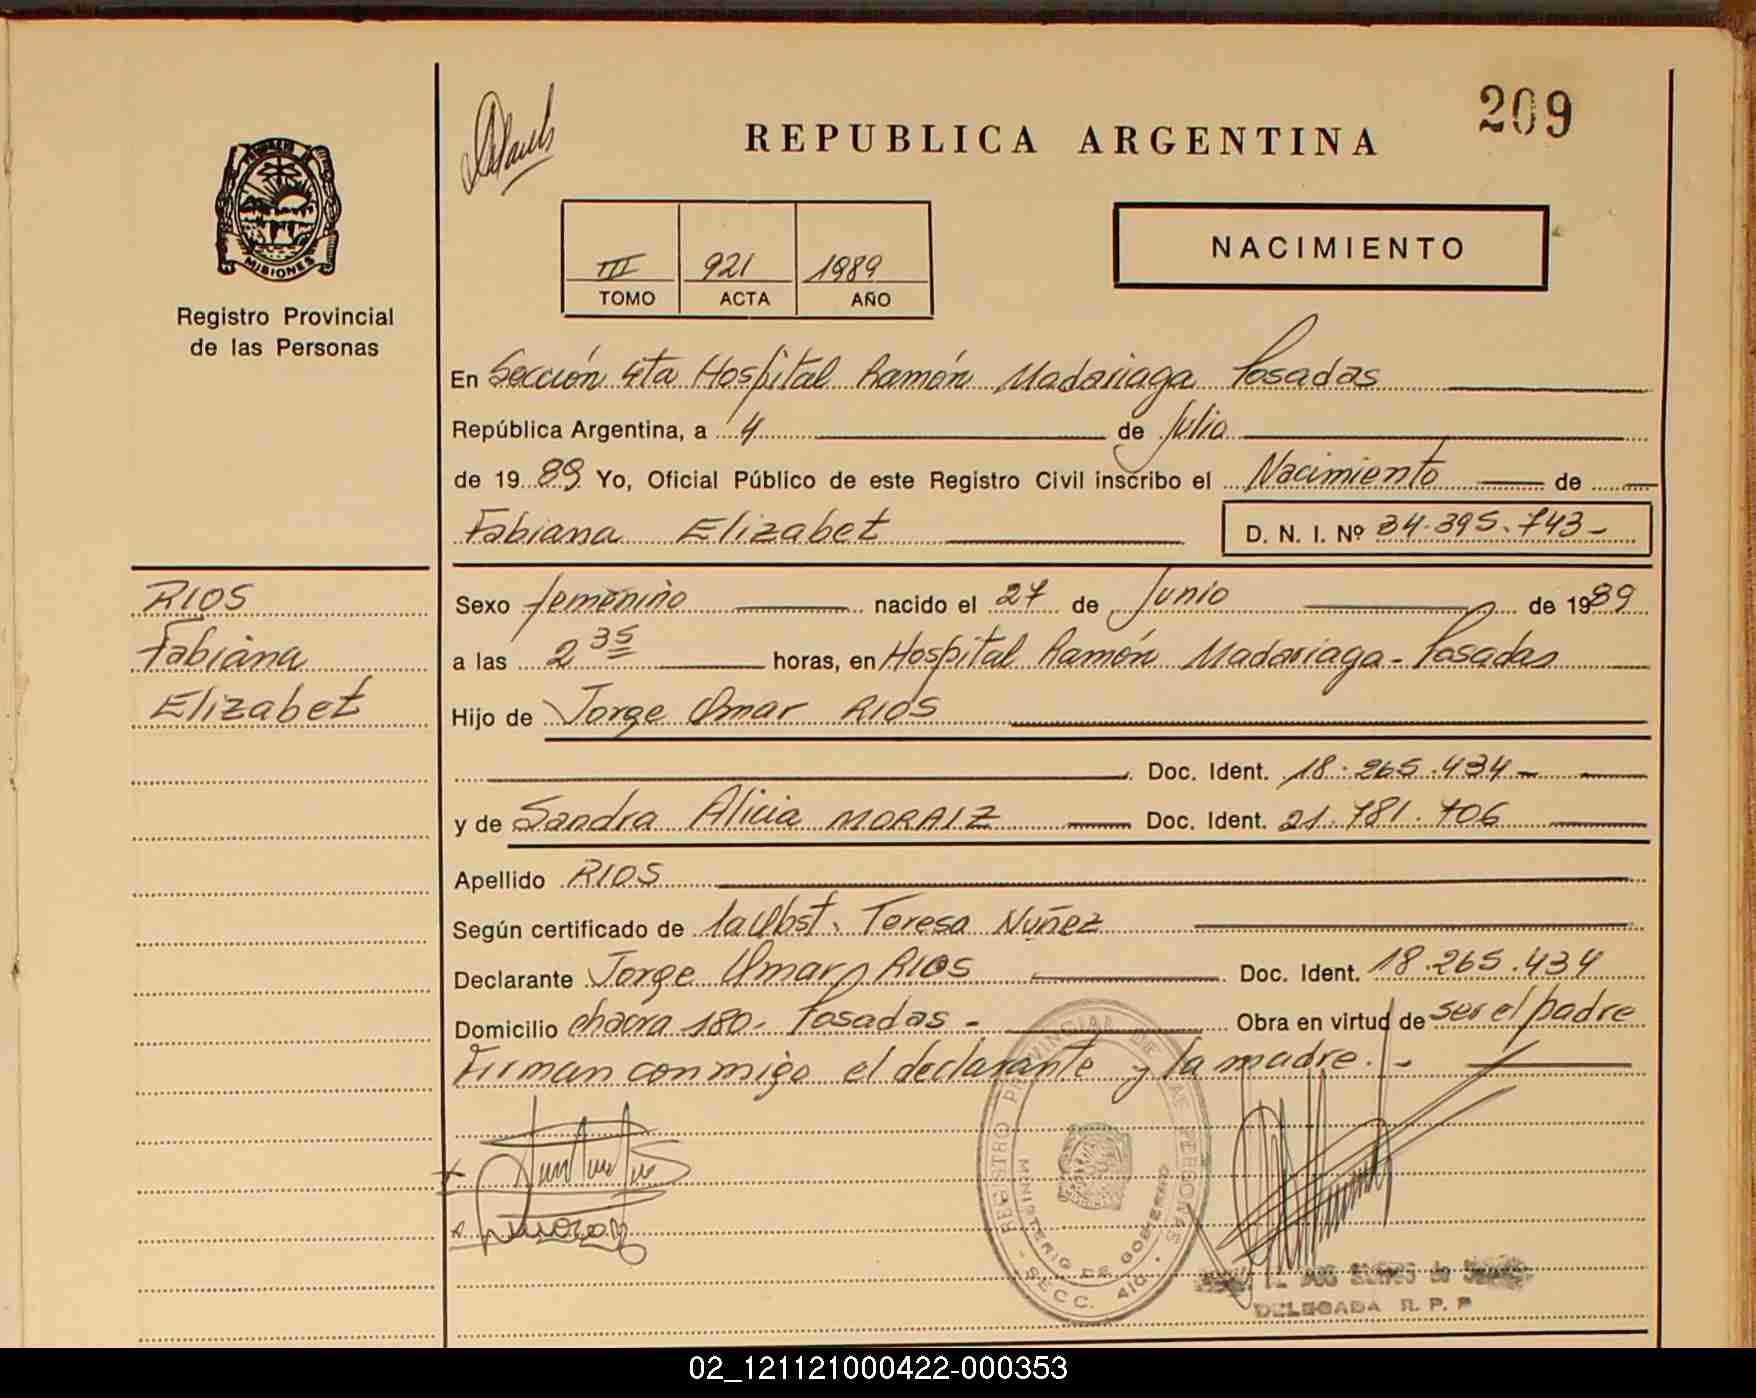 209
REPUBLICA ARGENTINA
MISIONES
Registro Provincial
de las Personas
III 921 1989
TOMO ACTA AÑO
NACIMIENTO
En Sección 4ta Hospital Ramón Madariaga Posadas
República Argentina, a 4 de Julio
de 1989 Yo, Oficial Público de este Registro Civil inscribo el Nacimiento de
Fabiana Elizabet D. N. I. Nº 34.395.743-
RIOS
Fabiana
Elizabet
Sexo femenino nacido el 27 de Junio de 1989
a las 2 35 horas, en Hospital Ramón Madariaga - Posadas
Hijo de Jorge Omar RIOS
Doc. Ident. 18.265.434-
y de Sandra Alicia MORAIZ Doc. Ident. 21.781.706
Apellido RIOS
Según certificado de la Obst. Teresa Nuñez
Declarante Jorge Omar RIOS Doc. Ident. 18.265.434
Domicilio chacra 180- Posadas - Obra en virtud de ser el padre
Firman conmigo el declarante y la madre.-
REGISTRO PROVINCIAL DE LAS PERSONAS
MINISTERIO DE GOBIERNO
SECC. 4TA.
DELEGADA R. P. P
02_121121000422-000353